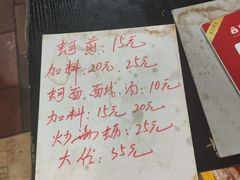 蚵煎：15元
加料：20元 25元
蚵面 面线 汤：10元
加料：15元 20元
炒海蛎：25元
大份：35元